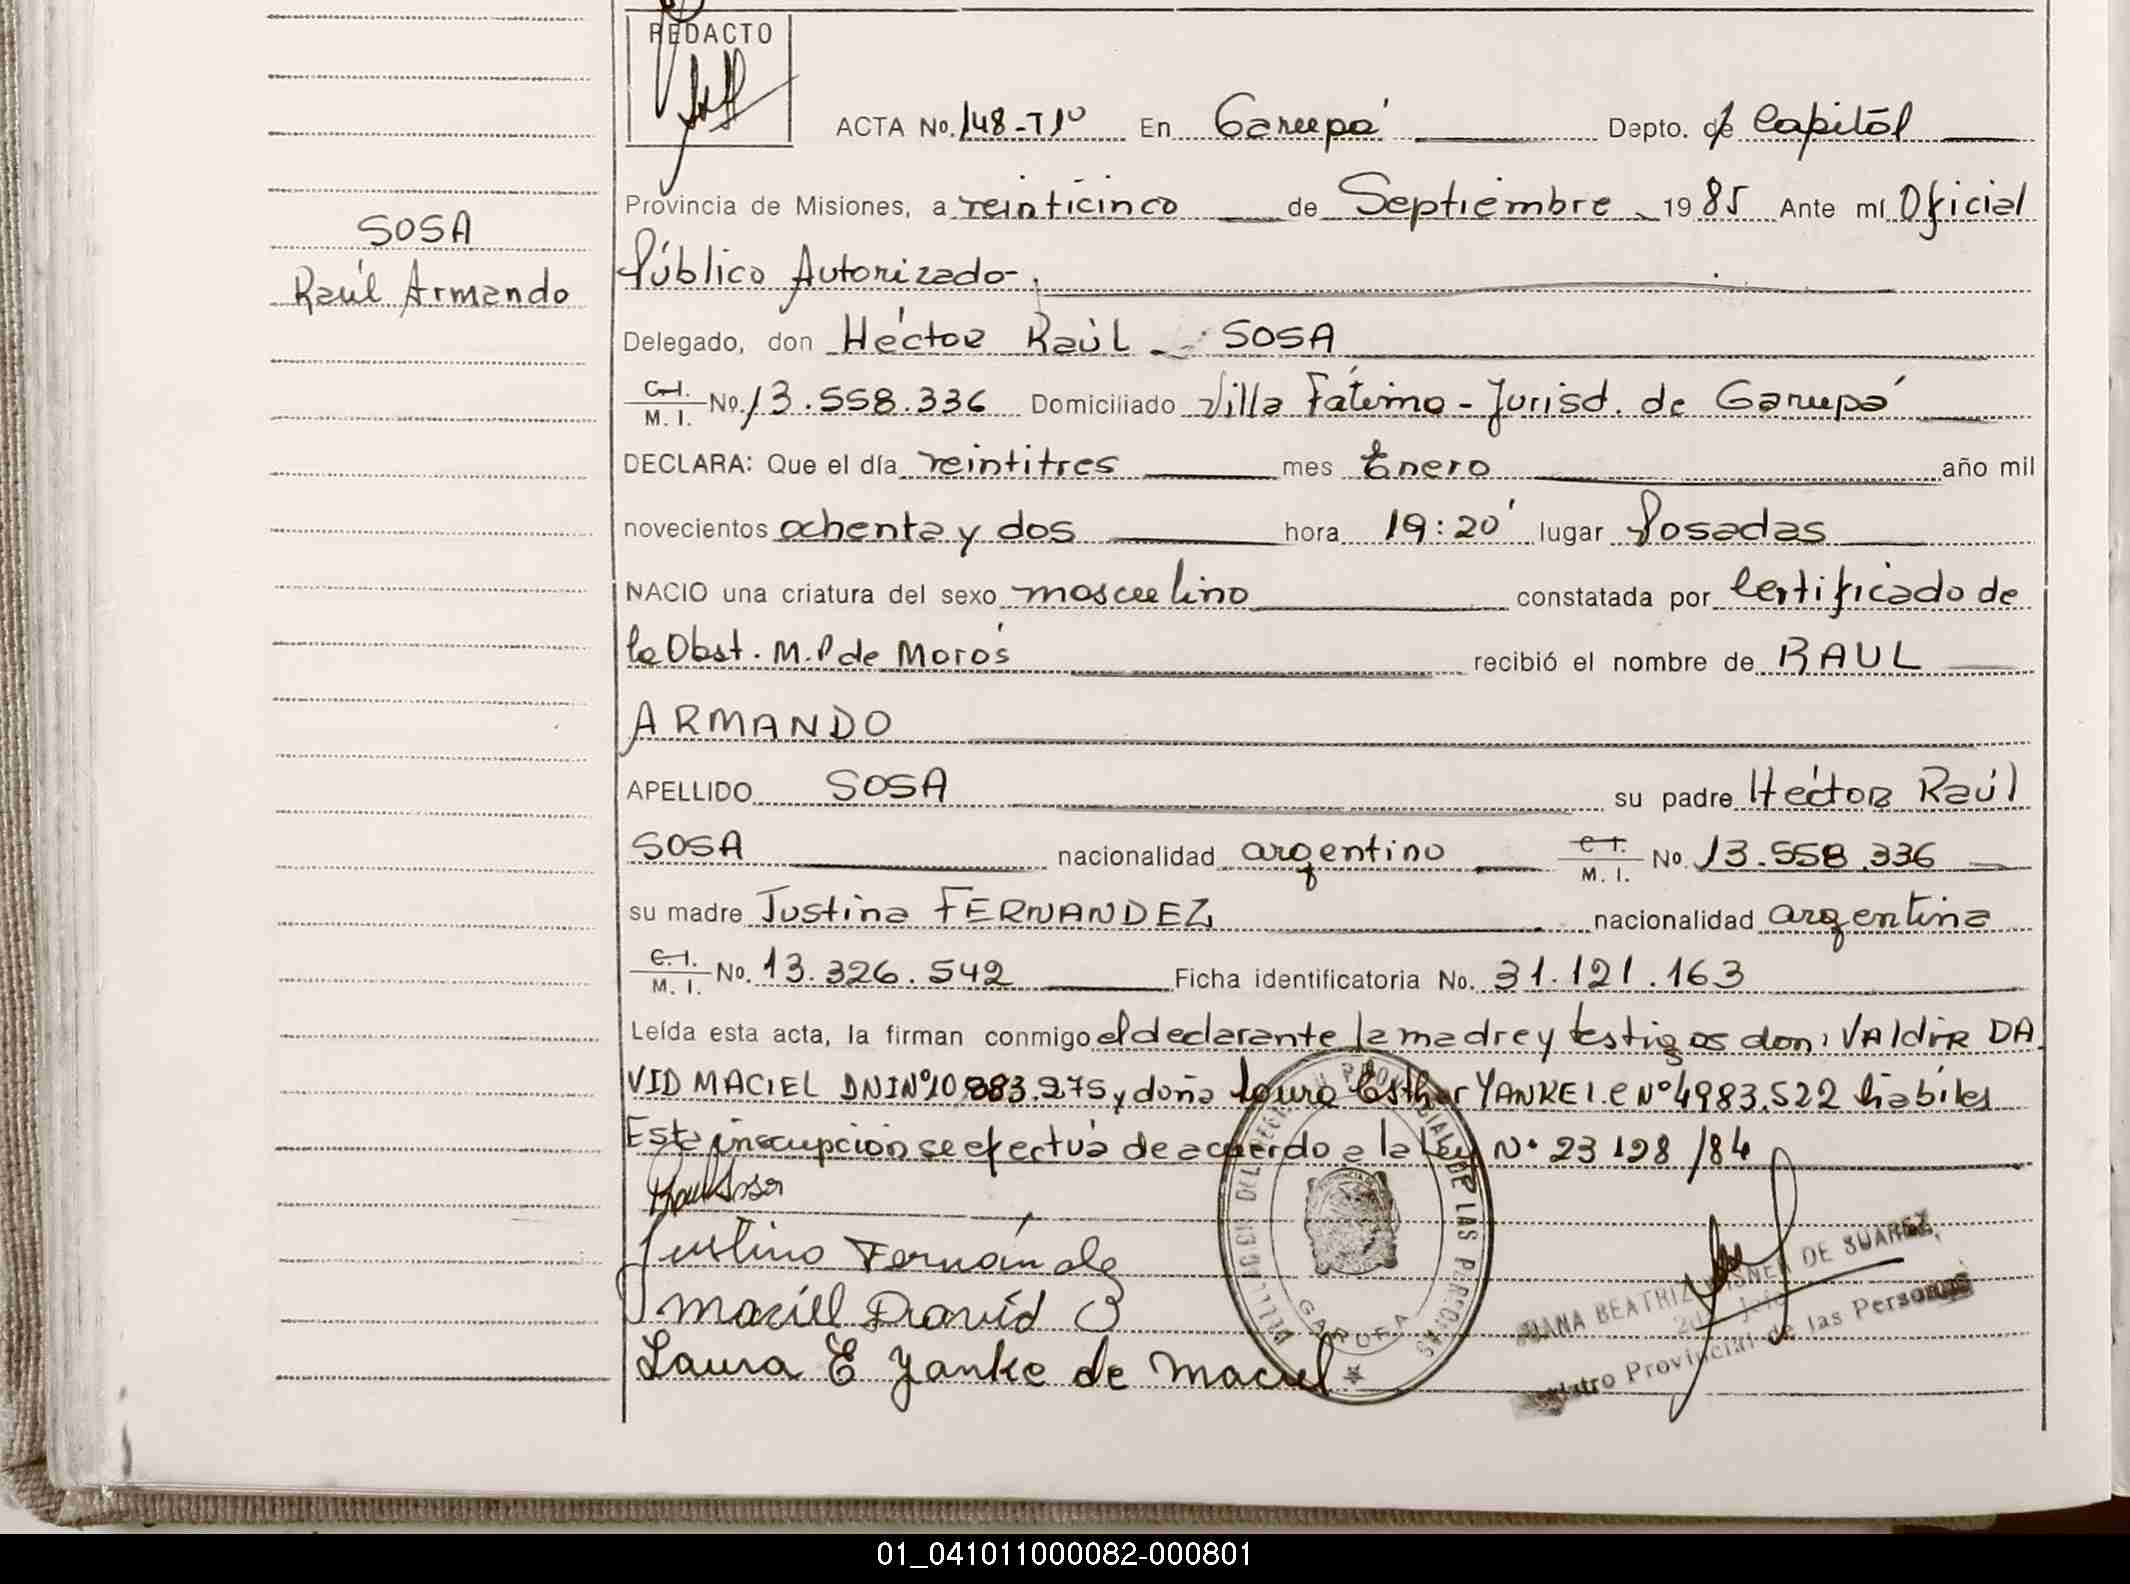 REDACTO
ACTA No. 148-Tº1º En Garupá Depto. de Capital
Provincia de Misiones, a veinticinco de Septiembre 1985 Ante mí Oficial
SOSA
Público Autorizado
Raúl Armando
Delegado, don Héctor Raúl SOSA
C.I. M.I. No. 13.558.336 Domiciliado Villa Fátima - Jurisd. de Garupá
DECLARA: Que el día veintitres mes Enero año mil
novecientos ochenta y dos hora 19:20' lugar Posadas
NACIO una criatura del sexo masculino constatada por Certificado de
la Obst. M.P de Moros recibió el nombre de RAUL
ARMANDO
APELLIDO SOSA su padre Héctor Raúl
SOSA nacionalidad argentino C.I. M.I. No. 13.558.336
su madre Justina FERNANDEZ nacionalidad argentina
C.I. M.I. No. 13.326.542 Ficha identificatoria No. 31.121.163
Leída esta acta, la firman conmigo el declarante la madre y testigos don: VAldiR DA
VID MACIEL DNI Nº10.883.275 y doña Laura Esther YANKE L.C Nº4983.522 hábiles
Esta inscripción se efectúa de acuerdo a la Ley Nº 23128/84
Justina Fernández
Maciel David
Laura E Yanke de Maciel
DEL REGISTRO PROVINCIAL DE LAS PERSONAS
GARUPA
JUANA BEATRIZ DE SUAREZ
Registro Provincial de las Personas
01_041011000082-000801